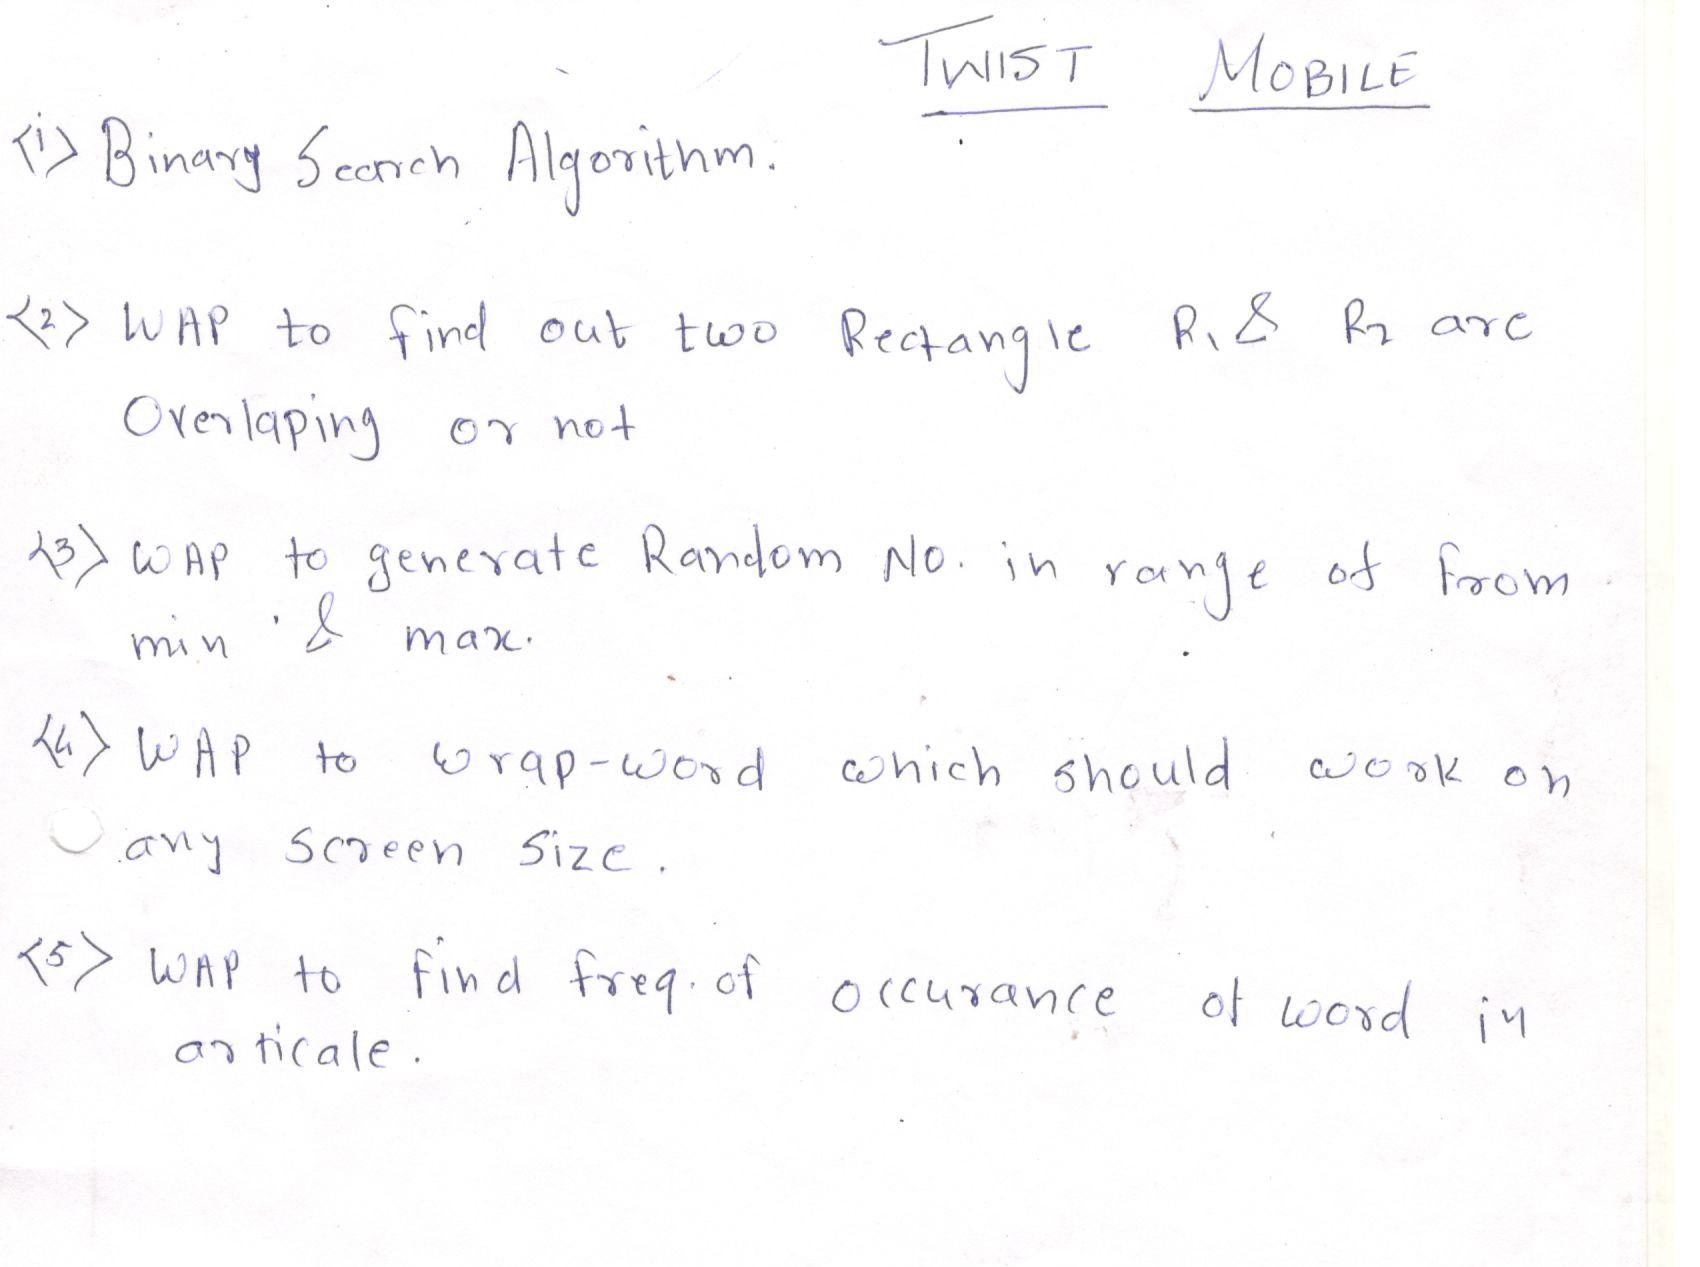 TWIST MOBILE
<1> Binary Search Algorithm.
<2> WAP to find out two Rectangle R1 & R2 are
Overlaping or not
<3> WAP to generate Random No. in range of from
min & max.
<4> WAP to wrap-word which should work on
any screen size.
<5> WAP to find freq. of occurance of word in
articale.